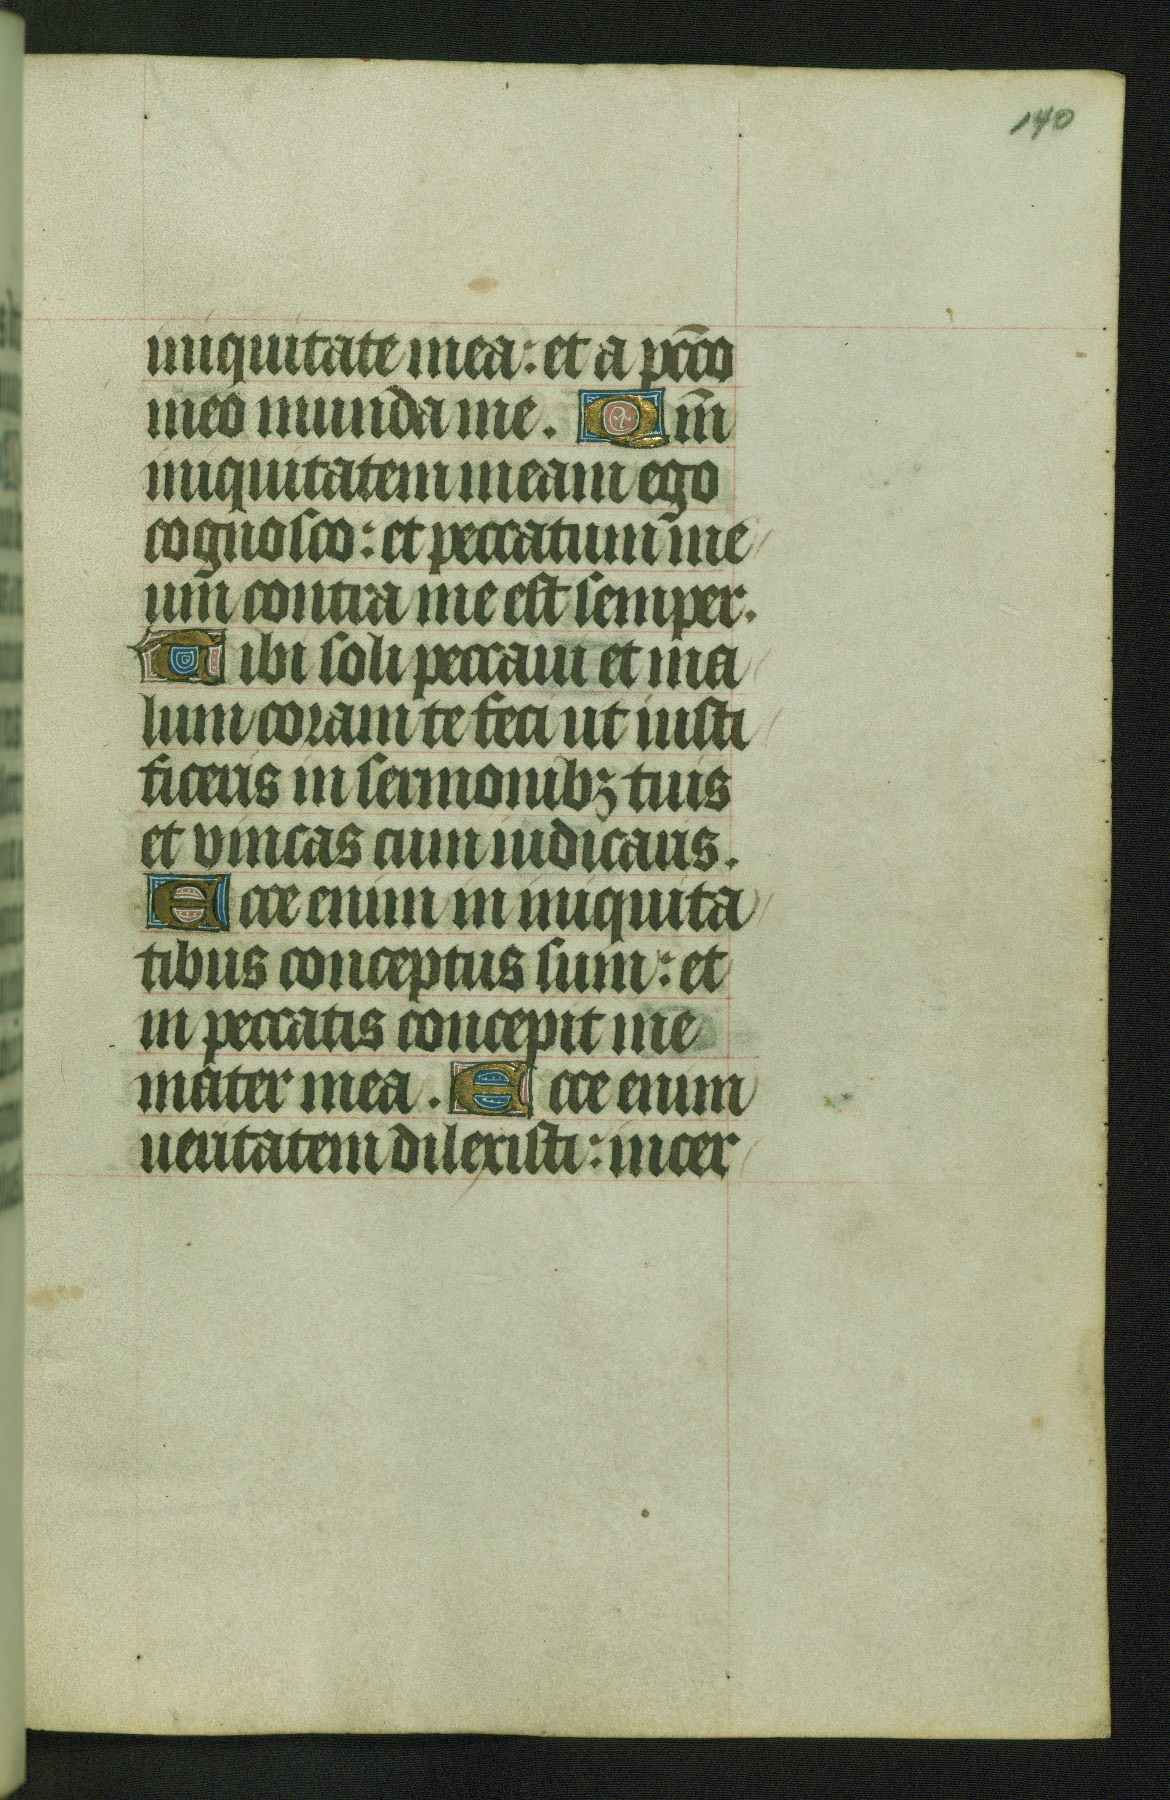 140
iniquitate mea: et a pctō
meo munda me. Qm̄
iniquitatem meam ego
cognosco: et peccatum me
um contra me est semper.
Tibi soli peccaui et ma
lum coram te feci ut iusti
ficeris in sermonibꝫ tuis
et vincas cum iudicaris.
Ecce enim in iniquita
tibus conceptus sum: et
in peccatis concepit me
mater mea. Ecce enim
ueritatem dilexisti: incer